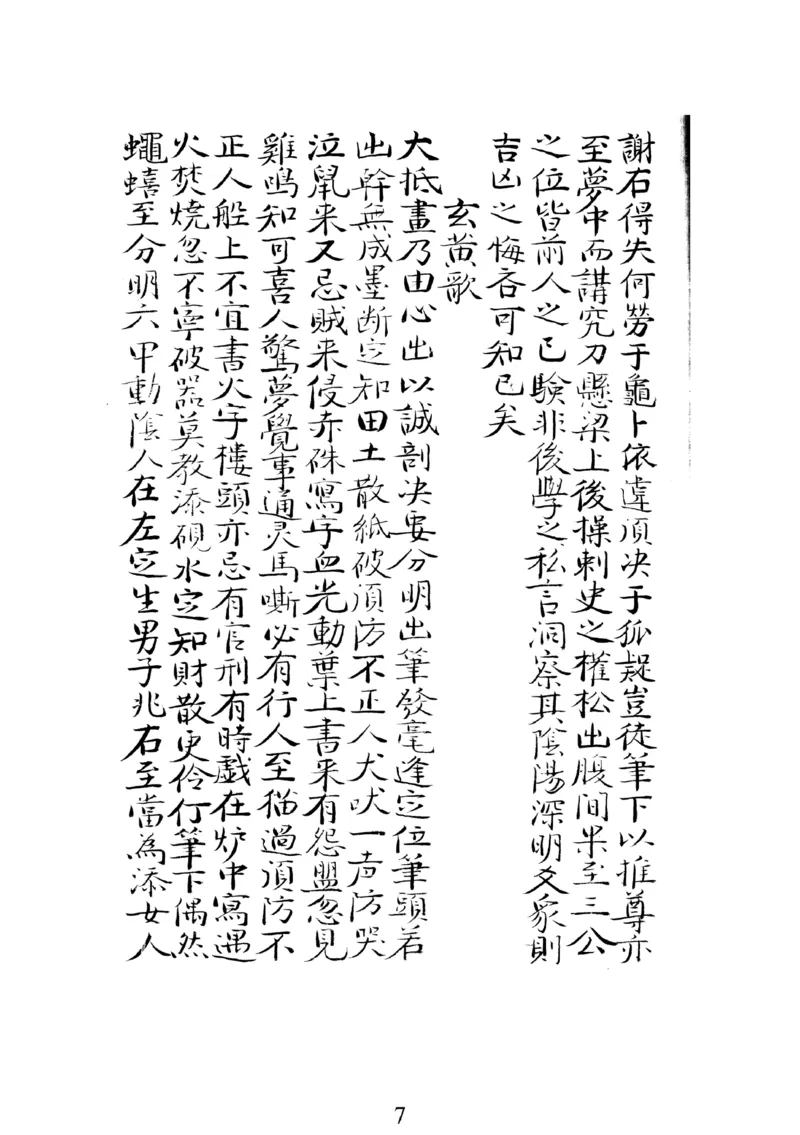 謝石得失何勞于龜卜依違須决于狐疑豈徒筆下以推尊亦
至夢中而講究刀懸梁上後操刺史之權松出腹間果至三公
之位皆前人之已驗非後學之私言洞察其陰陽深明爻象則
吉凶之悔吝可知已矣
玄黄歌
大抵畫乃由心出以誠剖决要分明出筆發毫逢定位筆頭若
出幹無成墨断定知田土散紙破須防不正人犬吠一声防哭
泣鼠来又忌賊来侵赤硃寫字血光動葉上書来有怨盟忽見
雞鳴知可喜人驚夢覺事通灵馬嘶必有行人至猫過須防不
正人船上不宜書火字樓頭亦忌有官刑有時戯在炉中寫遇
火焚燒忽不寧破器莫教添硯水定知財散更伶仃筆下偶然
蠅蟢至分明六甲動陰人在左定生男子兆右至當為添女人
7